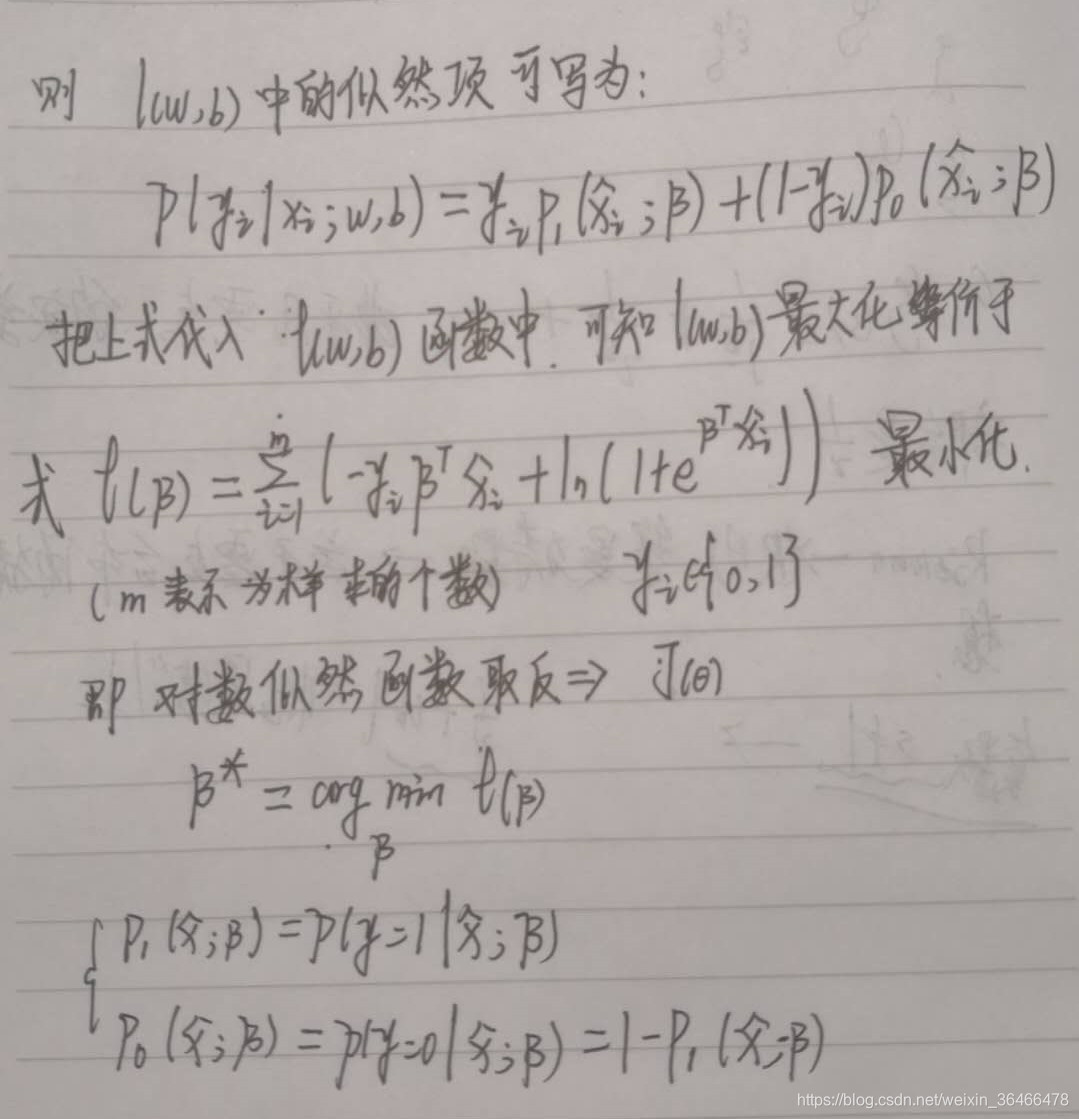 则 l(w,b) 中的似然项可写为:
p(y_i|x_i;w,b) = y_i p_1(x̂_i;β) + (1-y_i)p_0(x̂_i;β)
把上式代入 l(w,b) 函数中. 可知 l(w,b) 最大化等价于
式 l(β) = ∑_{i=1}^{m} (-y_i β^T x̂_i + ln(1+e^{β^T x̂_i})) 最小化.
(m 表示为样本的个数) y_i∈{0,1}
即 对数似然函数取反 ⇒ J(θ)
β* = arg min l(β)
β
{ p_1(x̂;β) = p(y=1|x̂;β)
p_0(x̂;β) = p(y=0|x̂;β) = 1-p_1(x̂;β)
https://blog.csdn.net/weixin_36466478